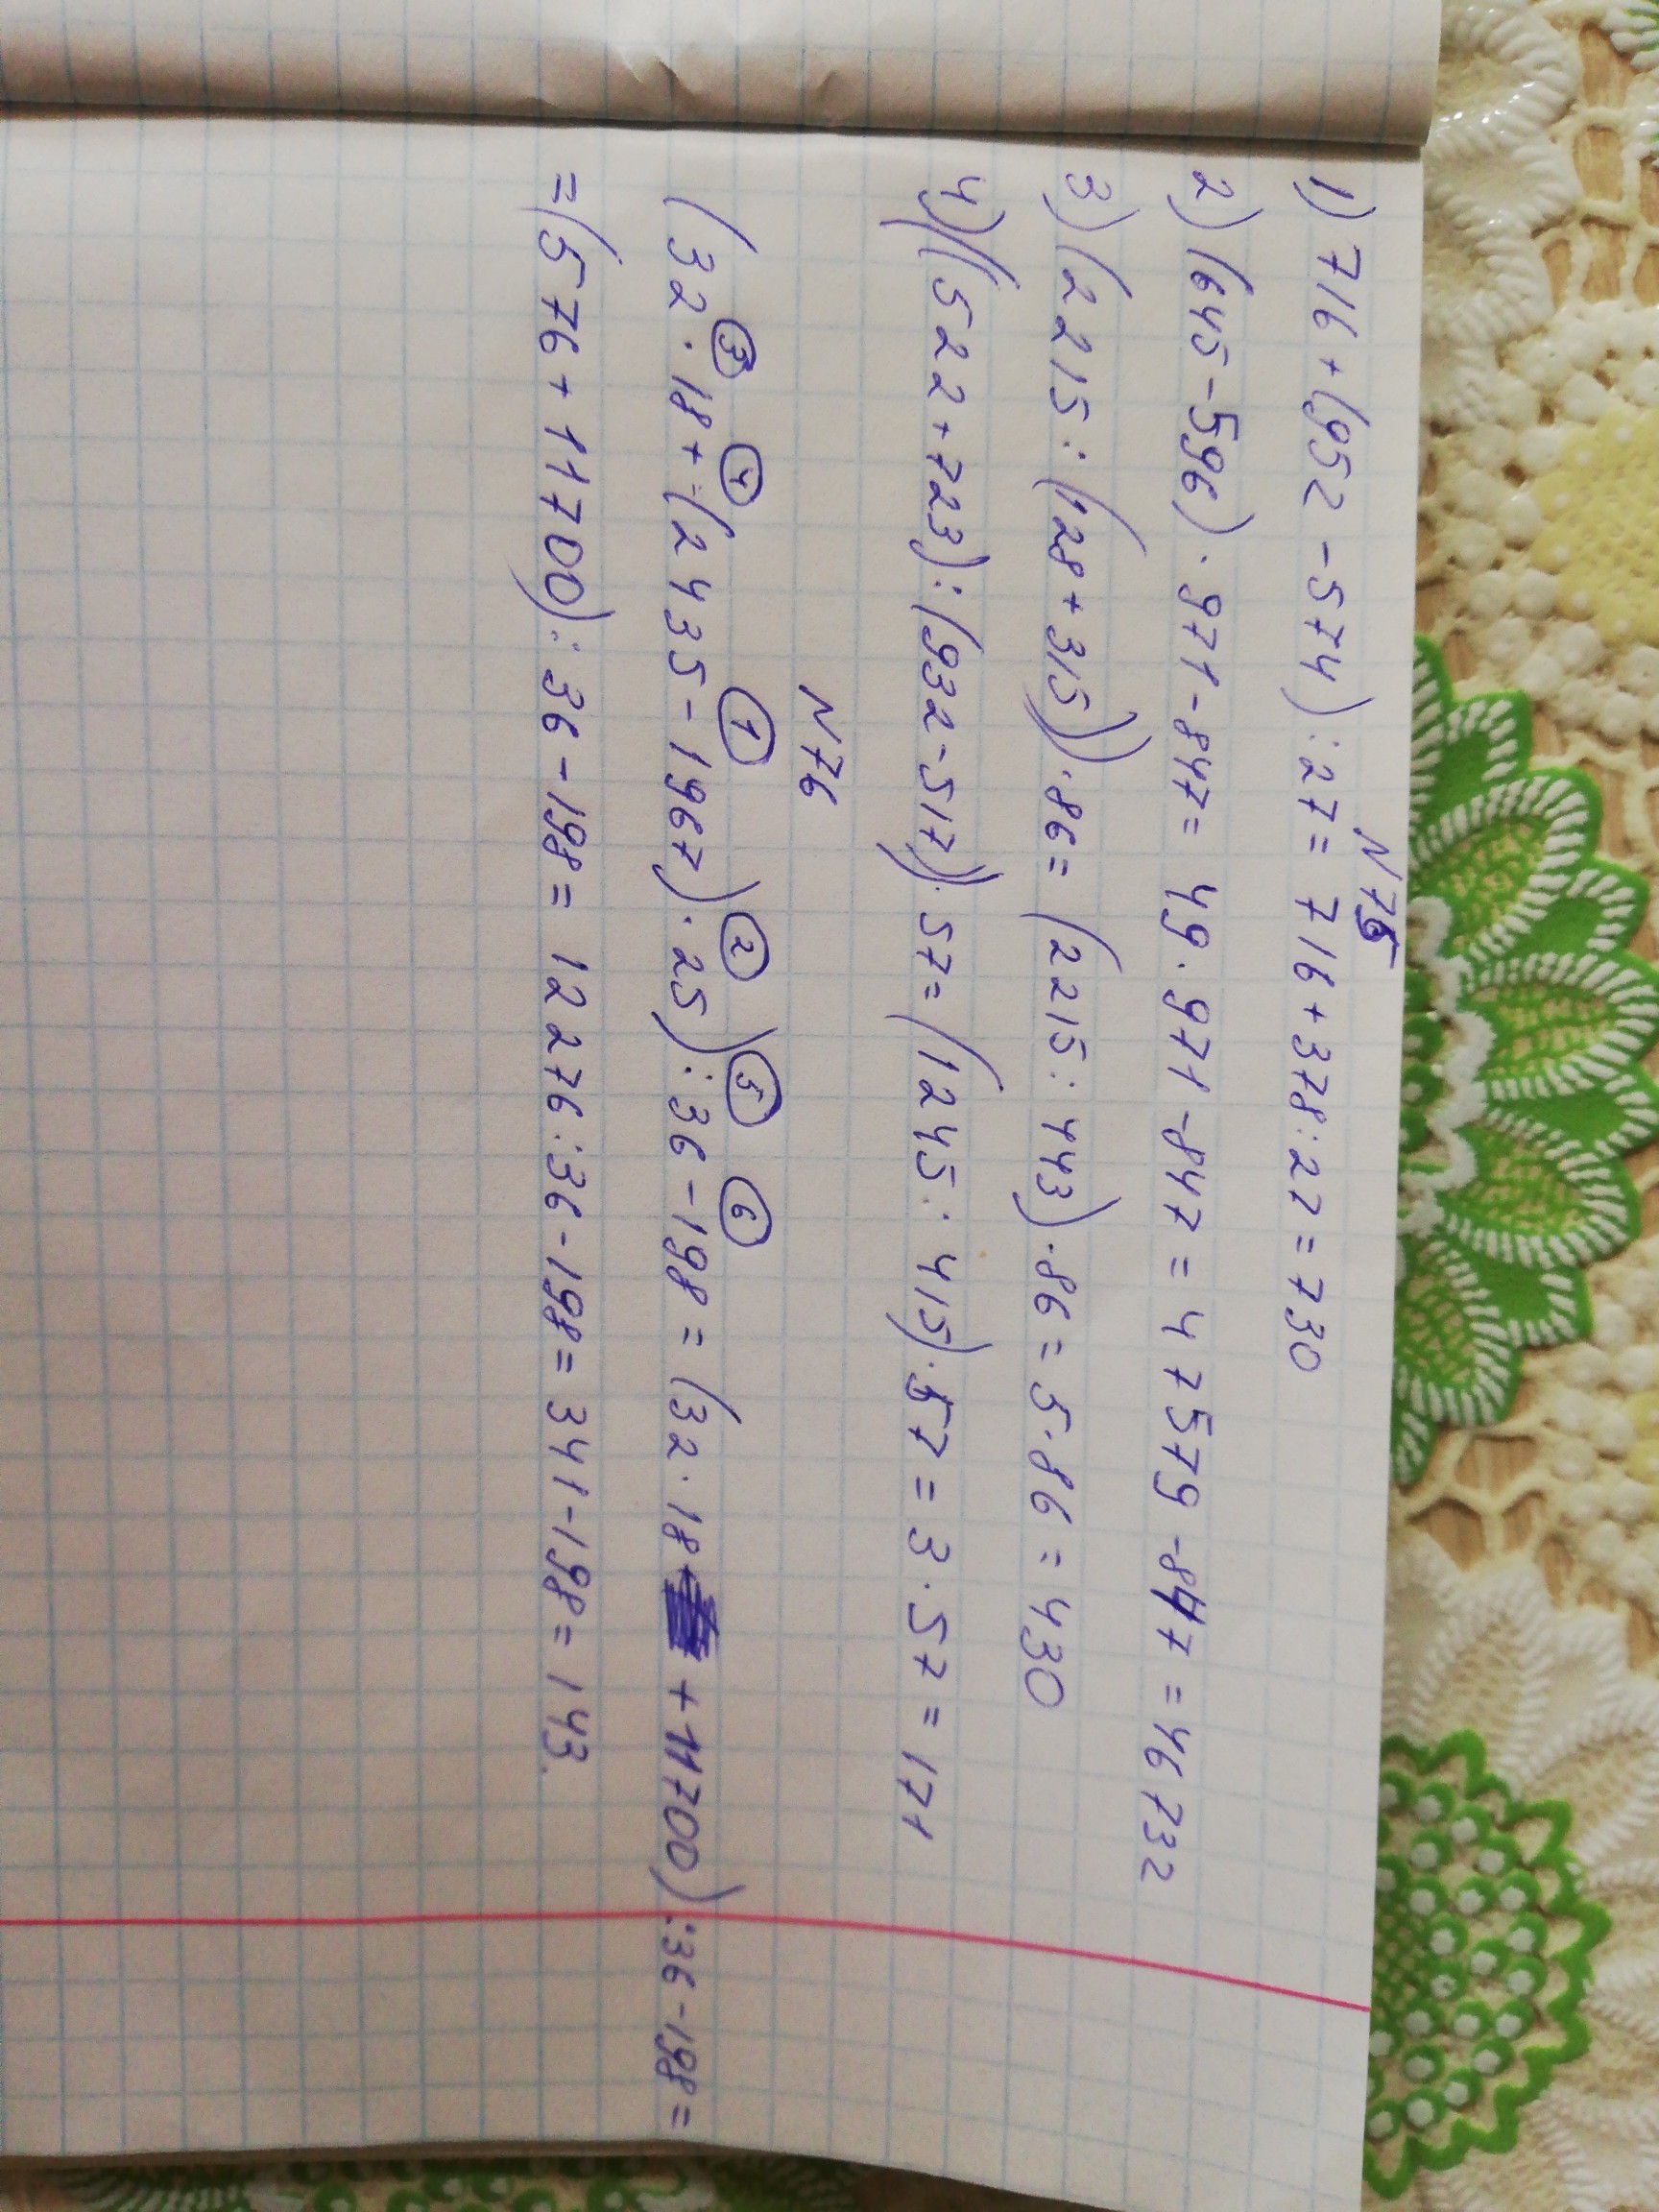 N 75
1) 716 + (952 - 574) : 27 = 716 + 378 : 27 = 730
2) (645 - 596) · 971 - 847 = 49 · 971 - 847 = 47579 - 847 = 46732
3) (2215 : (128 + 315)) · 86 = (2215 : 443) · 86 = 5 · 86 = 430
4) ((522 + 723) : (932 - 517)) · 57 = (1245 : 415) · 57 = 3 · 57 = 171
N 76
③ ④ ① ② ⑤ ⑥
(32 · 18 + (2435 - 1967) · 25) : 36 - 198 = (32 · 18 + 11700) : 36 - 198 =
= (576 + 11700) : 36 - 198 = 12276 : 36 - 198 = 341 - 198 = 143.